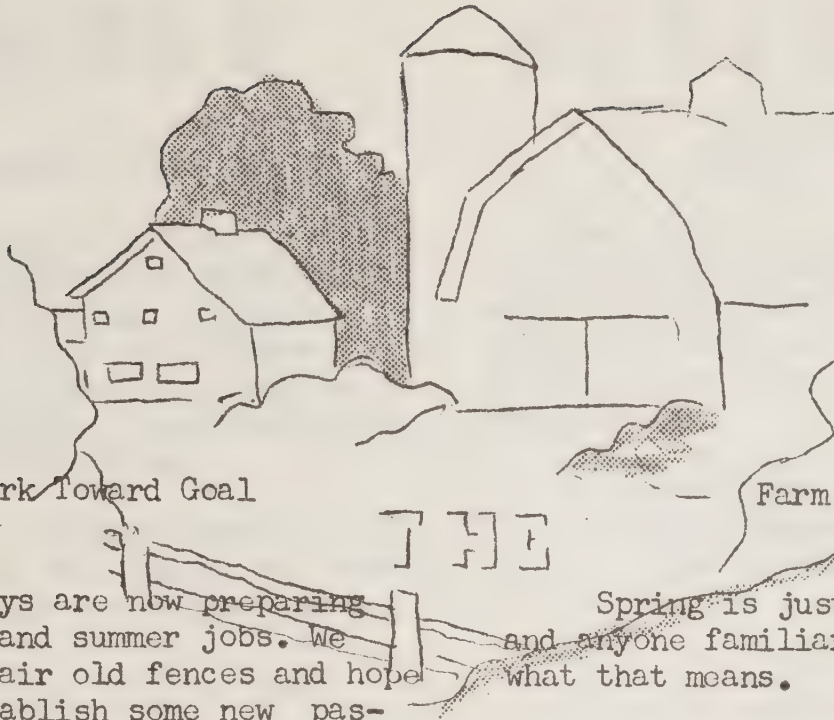 rk Toward Goal
THE
ys are now preparing
and summer jobs. We
air old fences and hope
ablish some new pas-
Farm
Spring is just
and anyone familiar
what that means.